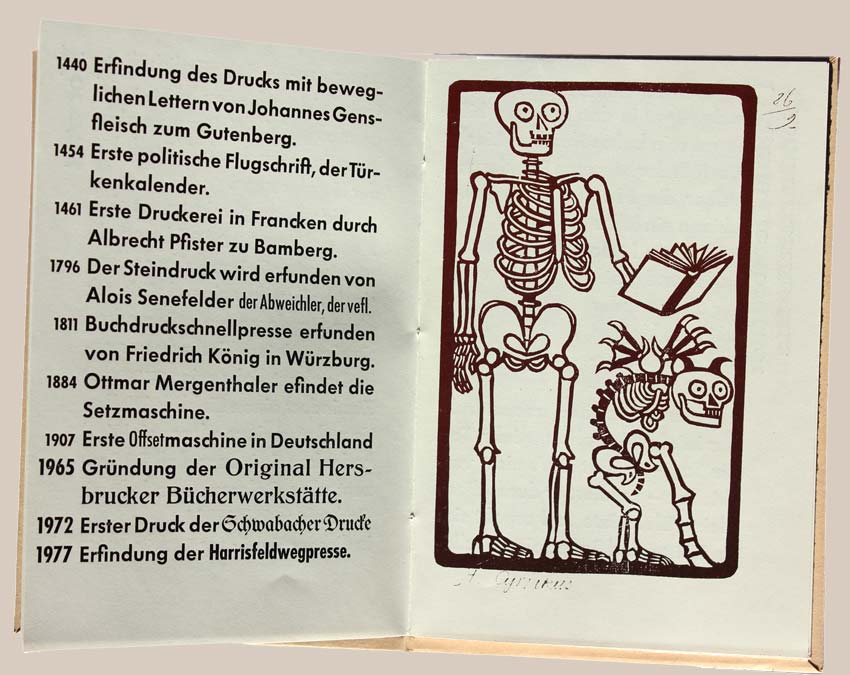 1440 Erfindung des Drucks mit beweg-
lichen Lettern von Johannes Gens-
fleisch zum Gutenberg.
1454 Erste politische Flugschrift, der Tür-
kenkalender.
1461 Erste Druckerei in Francken durch
Albrecht Pfister zu Bamberg.
1796 Der Steindruck wird erfunden von
Alois Senefelder der Abweichler, der vefl.
1811 Buchdruckschnellpresse erfunden
von Friedrich König in Würzburg.
1884 Ottmar Mergenthaler efindet die
Setzmaschine.
1907 Erste Offsetmaschine in Deutschland
1965 Gründung der Original Hers-
brucker Bücherwerkstätte.
1972 Erster Druck der Schwabacher Drucke
1977 Erfindung der Harrisfeldwegpresse.